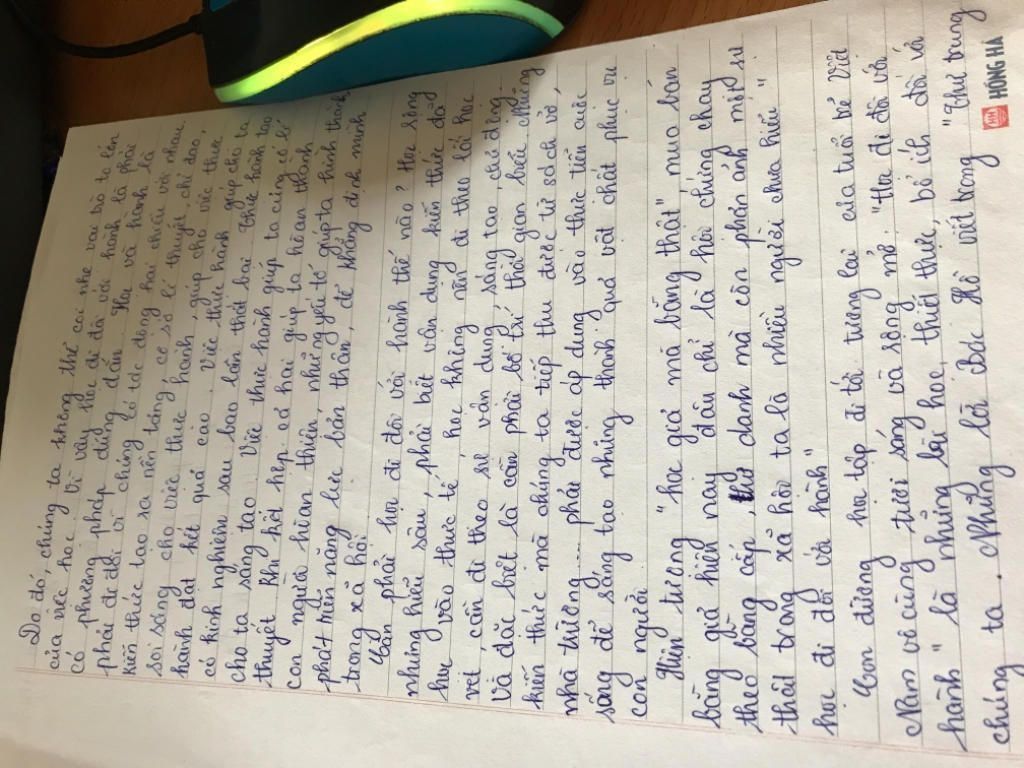 Do đó, chúng ta không thể coi nhẹ vai trò to lớn
của việc học. Vì vậy học đi đôi với hành là phải
có phương pháp đúng đắn. Học và hành là
phải đi đôi vì chúng có tác động hai chiều với nhau.
kiến thức tạo ra nền tảng, cơ sở lí thuyết, chỉ đạo,
soi sáng cho việc thực hành, giúp cho việc thực
hành đạt kết quả cao. Việc thực hành giúp cho ta
có kinh nghiệm sau bao lần thất bại. Thực hành tạo
cho ta sáng tạo. Việc thực hành giúp ta củng cố lí
thuyết. Khi kết hợp cả hai giúp ta hoàn thành
con người hoàn thiện, những yếu tố giúp ta hình thành,
phát triển năng lực bản thân, để khẳng định mình
trong xã hội.
Cần phải học đi đôi với hành thế nào? Học rộng
nhưng hiểu sâu, phải biết vận dụng kiến thức đã
học vào thực tế, học không nên đi theo lối học
vẹt, cần đi theo sự vận dụng, sáng tạo, chủ động.
Và đặc biệt là cần phải bố trí thời gian biểu. Những
kiến thức mà chúng ta tiếp thu được từ sách vở,
nhà trường... phải được áp dụng vào thực tiễn cuộc
sống để sáng tạo những thành quả vật chất phục vụ
con người.
Hiện tượng "học giả mà bằng thật" mua bán
bằng giả hiện nay đâu chỉ là hồi chúng chạy
theo bằng cấp, danh mà còn phản ánh một sự
thật trong xã hội ta là nhiều người chưa hiểu "
học đi đôi với hành"
Con đường học tập đi tới tương lai của tuổi trẻ Việt
Nam vô cùng tươi sáng và rộng mở. "Học đi đôi với
hành" là những bài học, thiết thực, bổ ích đối với
chúng ta. Những lời Bác Hồ viết trong "Thư trung
HỒNG HÀ